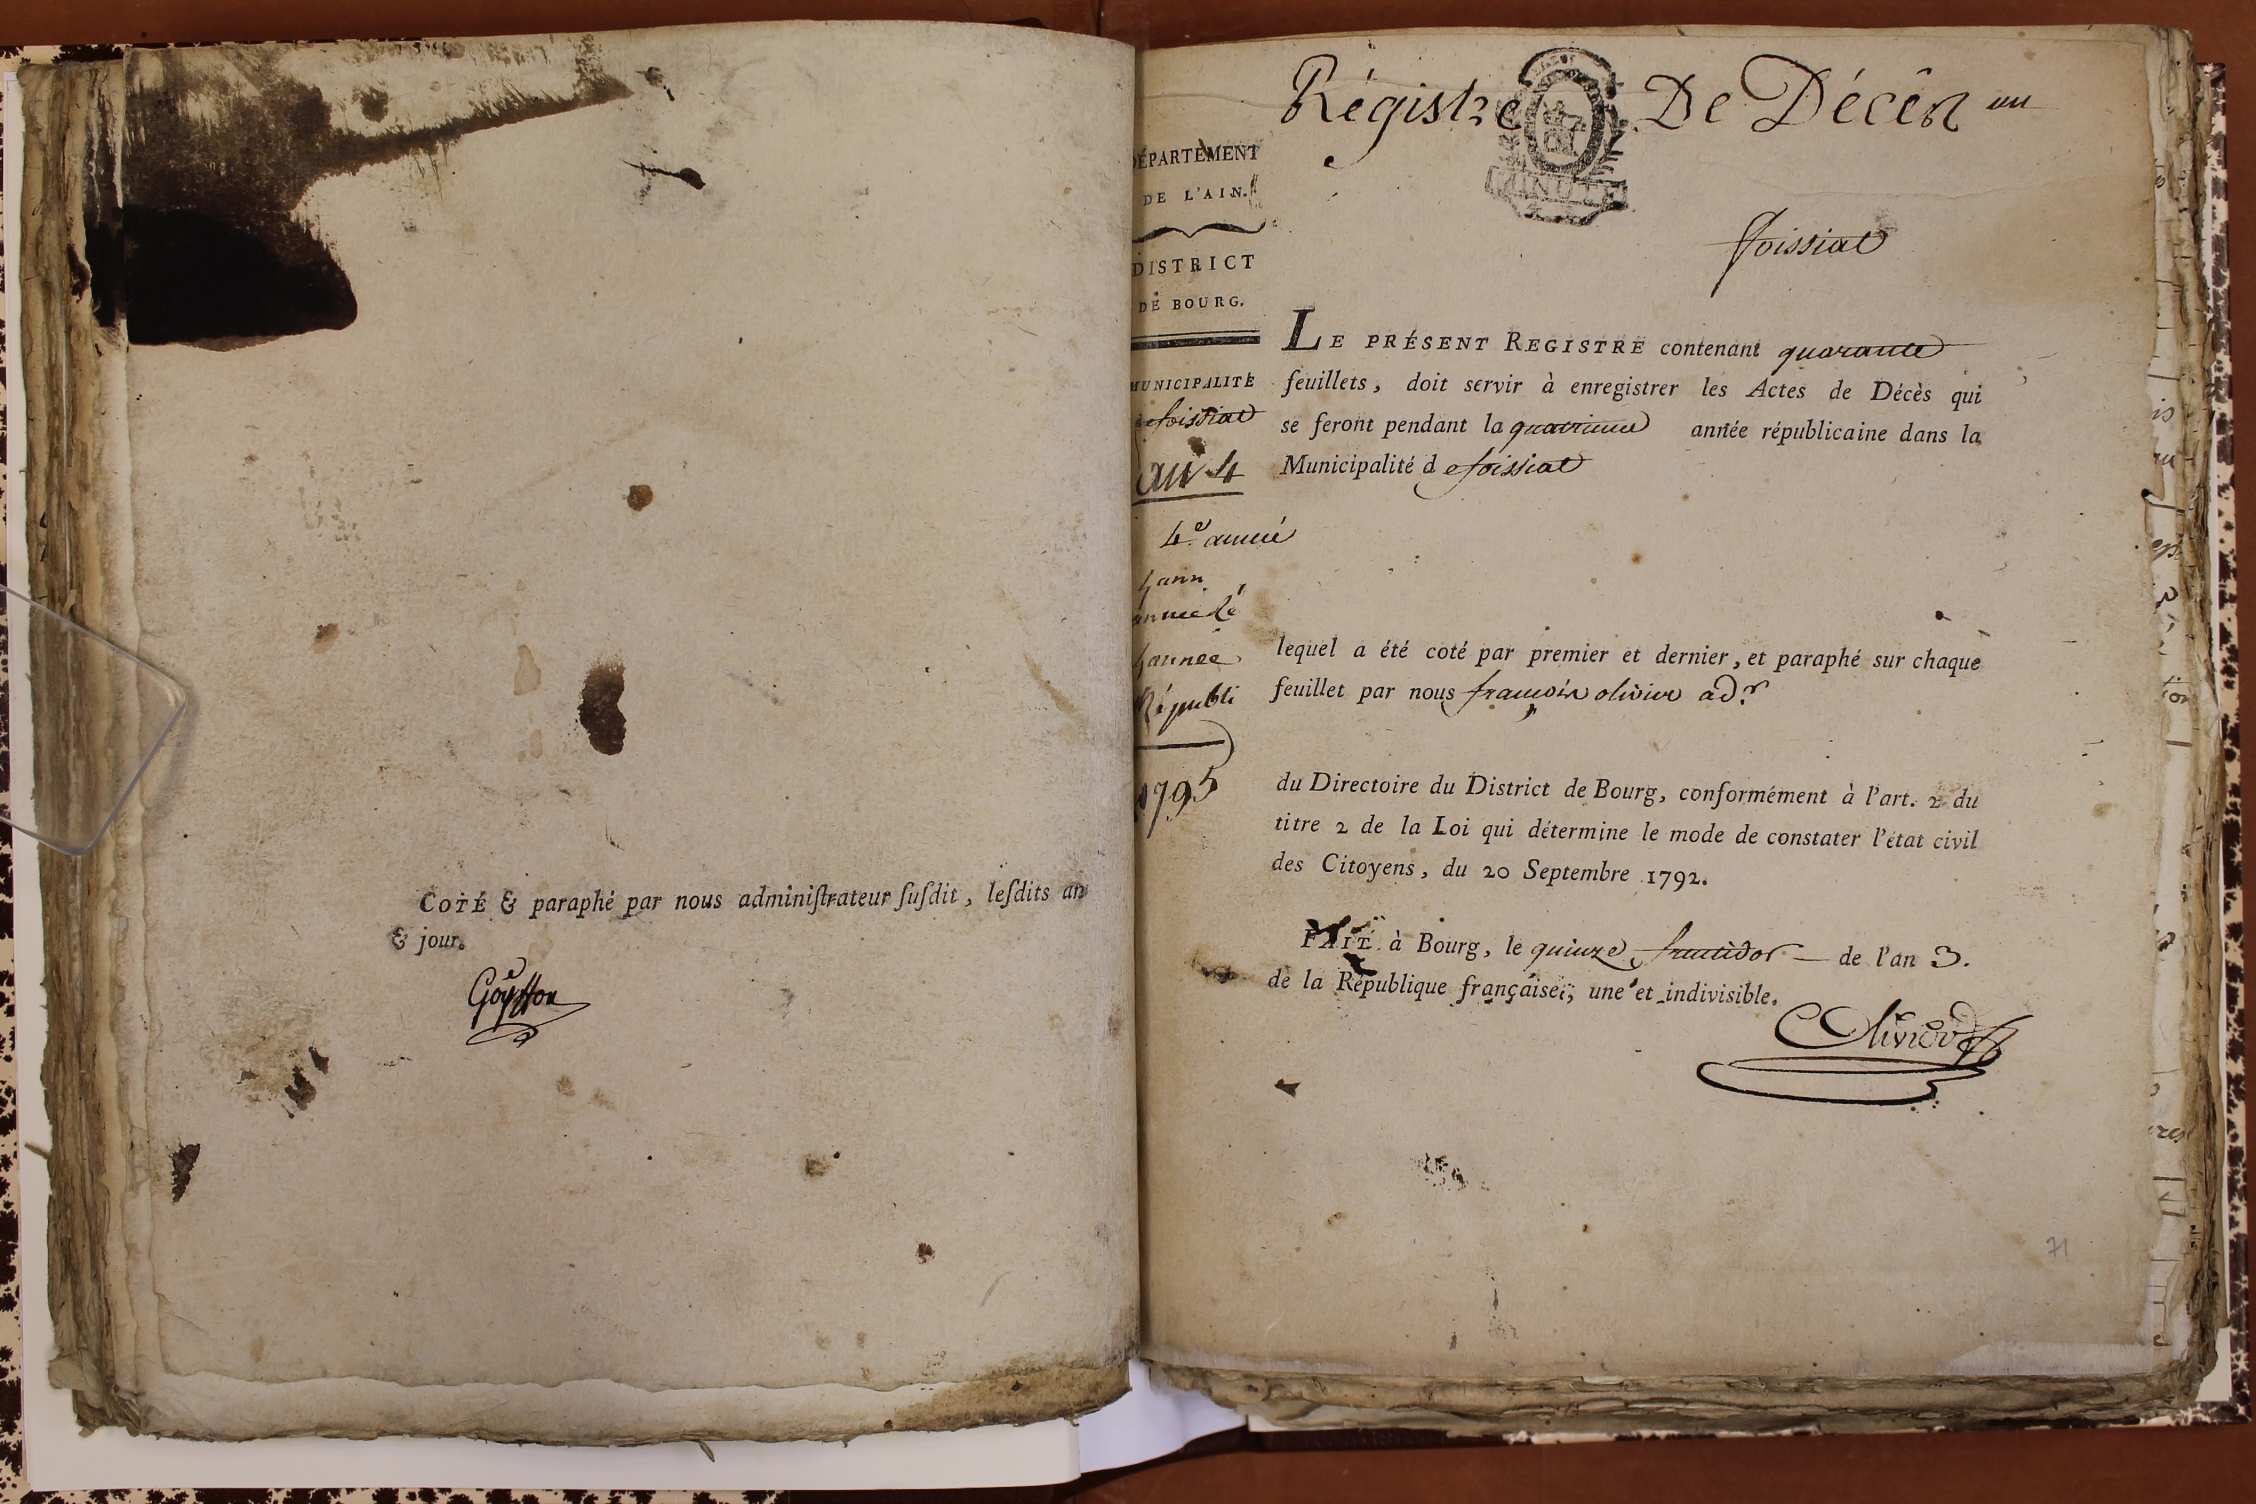 COTÉ & paraphé par nous adminiſtrateur ſuſdit, leſdits an
& jour.
Goyffon
Régistre De Décès
un
MINUTE
DÉPARTEMENT
DE L'AIN.
DISTRICT
DE BOURG.
MUNICIPALITÉ
de foissiat
an 4
4e. année
4 ann
année Ré
4 année
Républi
1795
foissiat
LE PRÉSENT REGISTRE contenant quarante
feuillets, doit servir à enregistrer les Actes de Décès qui
se feront pendant la quatrieme année républicaine dans la
Municipalité d e foissiat
lequel a été coté par premier et dernier, et paraphé sur chaque
feuillet par nous françois olivier adr.
du Directoire du District de Bourg, conformément à l'art. 2 du
titre 2 de la Loi qui détermine le mode de constater l'état civil
des Citoyens, du 20 Septembre 1792.
FAIT à Bourg, le quinze fructidor de l'an 3.
de la République française, une et indivisible.
Olivier
71